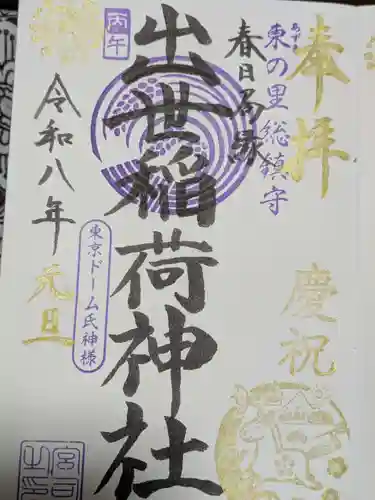 奉拝
慶祝
東の里総鎮守
あずま
春日局縁
出世稲荷神社
丙午
東京ドーム氏神様
令和八年
元旦
宮司
之印